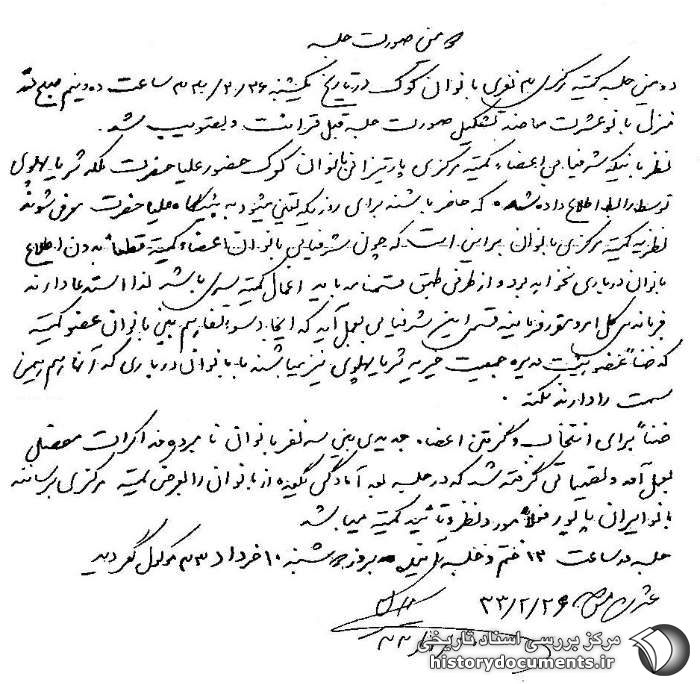 دومین صورت جلسه
دومین جلسه کمیته مرکزی ۳ نفری بانوان کوک در تاریخ یکشنبه ۳۳/۲/۲۶ ساعت ده و نیم صبح
منزل بانو عشرت تشکیل صورت جلسه قبل قرائت و بتصویب رسید .
نظر باینکه شرفیابی اعضاء کمیته مرکزی پارتیزانی بانوان کوک حضور علیاحضرت ملکه ثریا پهلوی
توسط رابط اطلاع داده شد که حاضر باشند برای روزیکه تعیین میشود به پیشگاه علیاحضرت معرفی شوند
نظریه کمیته مرکزی بانوان براین است که چون شرفیابی بانوان اعضاء کمیته قطعاً بدون اطلاع
بانوان درباری نخواهد بود و از طرفی طبق باید اعمال کمیته سری باشد لذا استدعا دارند
فرماندهی کل امر و مقرر فرمایند قسمی این شرفیابی بعمل آید که ایجاد سوء تفاهم بین بانوان عضو کمیته
که ضمناً عضو هیئت مدیره جمعیت خیریه ثریا پهلوی نیز میباشند با بانوان درباری که آنها هم همین
سمت را دارند نکند .
ضمناً برای انتخاب و گرفتن اعضاء جدیدی بین سه نفر بانوان نامبرده مذاکرات مفصلی
بعمل آمد و تصمیماتی گرفته شد که در جلسه بعد آمادگی از بانوان را بعرض کمیته مرکزی برسانند
بانو ایران پاکپور فعلاً مورد نظر و تأیید کمیته میباشد
جلسه در ساعت ۱۳ ختم و جلسه بروز شنبه ۱۰ خرداد ۳۳ موکول گردید
۳۳/۲/۲۶
مرکز بررسی اسناد تاریخی
historydocuments.ir